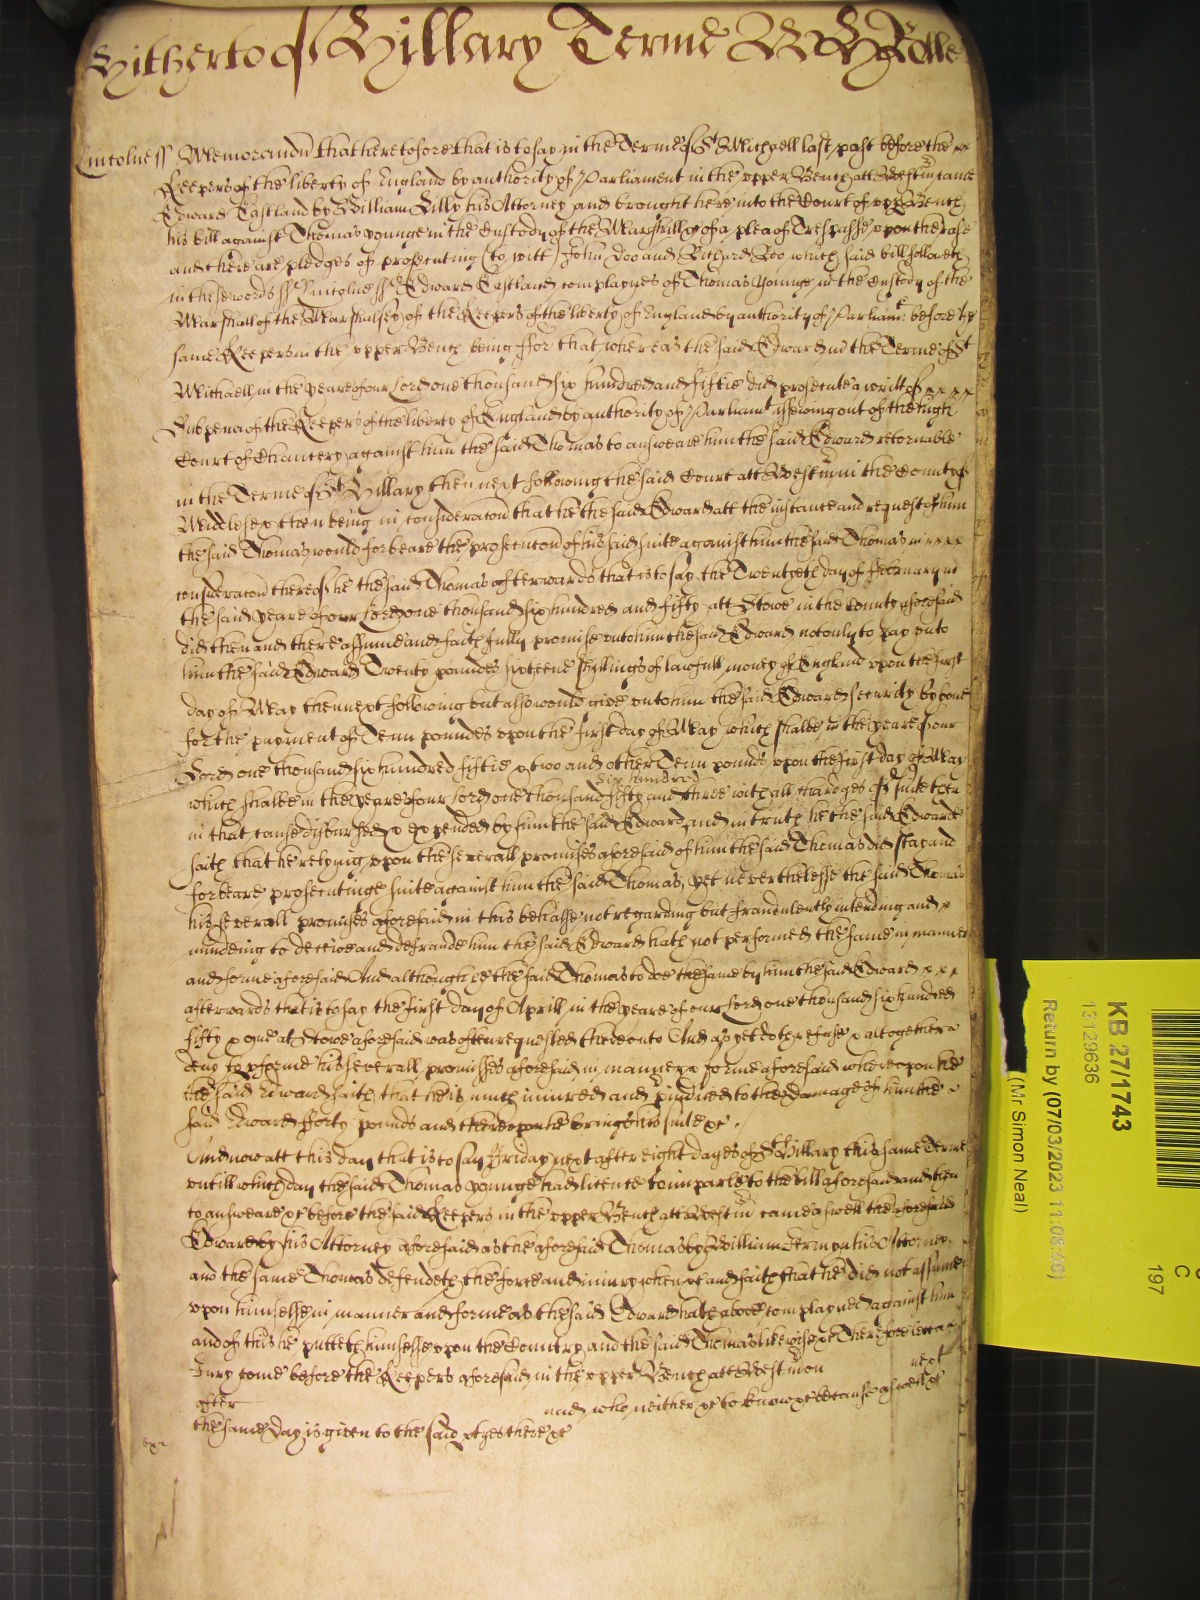 Hitherto of Hillary Terme
Lincolne ss Memorandu that heretofore that is to say in the Terme of St Michaell last past before the
Keepers of the liberty of England by authority of Parliament in the upper Bench att Westm came
Edward Eastland by William Lilly his Attorney and brought here into the Court of upp Bench
his bill against Thomas younge in the Custody of the Marshall &c of a plea of Trespasse upon the case
and there are pledges of prosecuting (to witt) John Doo and Richard Roo, which said bill followeth
in these words ss Lincolne ss Edward Eastland complaynes of Thomas Younge in the Custody of the
Marshall of the Marshalsey of the Keepers of the liberty of England by authority of Parliam: before the
same Keepers in the upper Bench being ffor that whereas the said Edward in the Terme of St
Michaell in the yeare of our Lord one thousand six hundred and fiftie did prosecute a writt of
Subpena of the Keepers of the liberty of England by authority of Parliamt issueing out of the high
Court of Chancery against him the said Thomas to answeare him the said Edward retornable
in the Terme of St Hillary then next following the said Court att Westm in the County of
Middlesex then being in consideracon that he the said Edward att the instance and request of him
the said Thomas would forbeare the prosecucon of his said suite against him the said Thomas in
consideracon thereof he the said Thomas afterwards that is to say the Twentyeth day of February in
the said yeare of our Lord one thousand six hundred and fifty att Stowe in the County aforesaid
did then and there assume and faithfully promise unto him the said Edward not only to pay unto
him the said Edward Twenty poundes sixteene shillings of lawfull money of England upon the first
day of May then next following but also would give unto him the said Edward security by bond
for the payment of Tenn poundes upon the first day of May which shalbe in the yeare of our
Lord one thousand six hundred fiftie & two and other Tenn pounds upon the first day of May
which shalbe in the yeare of our Lord one thousand six hundred fifty and three with all chardges of suite then
in that cause disbursed & expended by him the said Edward, and in truth he the said Edward
saith that he relying upon the severall promises aforesaid of him the said Thomas did stay and
forbeare prosecutinge suite against him the said Thomas, yet neverthelesse the said Thomas
his severall promises aforesaid in this behalfe not regarding but fraudulently intending and
mindeing to deceive and defraude him the said Edward hath not performed the same in manner
and forme aforesaid And although he the said Thomas to doe the same by him the said Edward
afterwards that is to say the first day of Aprill in the yeare of our Lord one thousand six hundred
fifty & one at Stowe aforesaid was often requested thereonto And as yet doth refuse & altogether
deny to pforme his severall promisses aforesaid in manner & forme aforesaid whereupon he
the said Edward saith that he is much iniured and pjudiced to the Damage of him the
said Edward fforty pounds and thereupon he brings his suite &c.
And now att this day that is to say Friday next after eight dayes of St Hillary this same Terme
untill which day the said Thomas younge had licence to imparle to the bill aforesaid and then
to answeare &c before the said Keepers in the upper Bench att Westm came aswell the aforesaid
Edward by his Attorney aforesaid as the aforesaid Thomas by William Jermyn his Attorney
and the same Thomas defendeth the force and iniury when &c and saith that he did not assume
upon himselfe in manner and forme as the said Edward hath above complayned against him
and of this he putteth himselfe upon the Country and the said Thomas likewise &c Therefore lett a
Jury come before the Keepers aforesaid in the upper Bench att Westm on next
after and who neither &c to know &c because aswell &c
the same Day is given to the said ptyes there &c
KB 27/1743
13129636
Return by (07/03/2023 11:08:00)
(Mr Simon Neal)
C
197